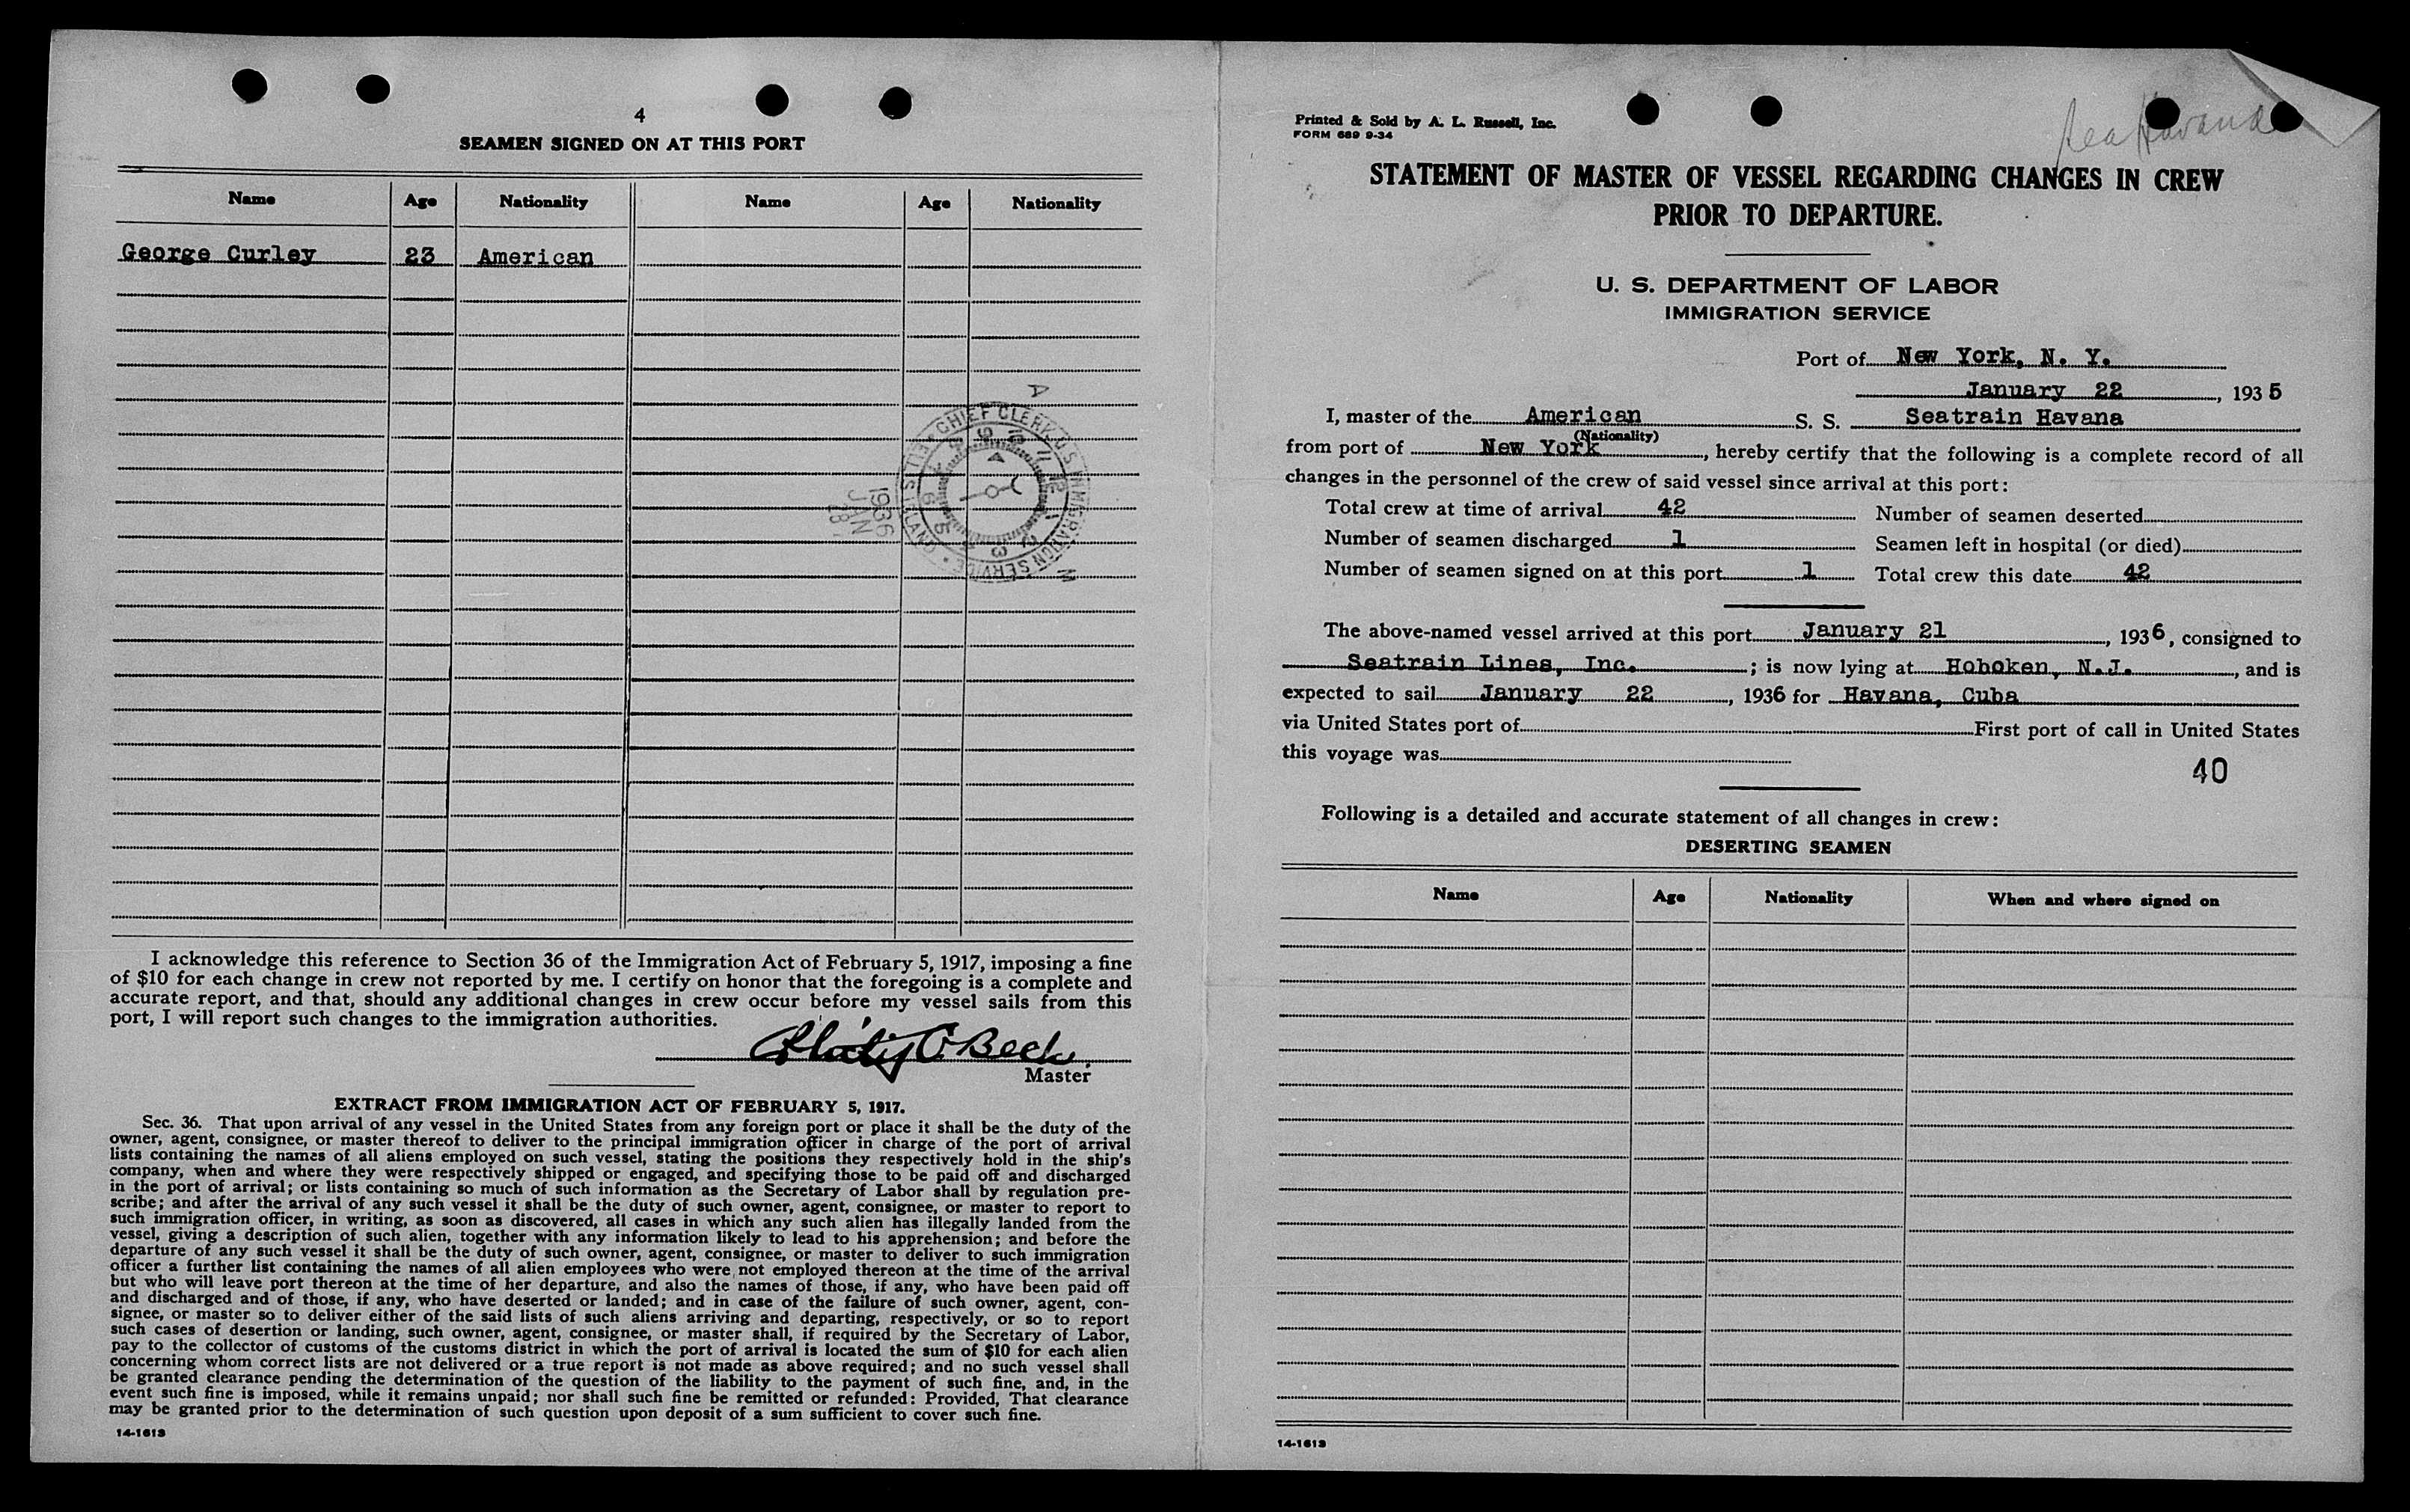 4
SEAMEN SIGNED ON AT THIS PORT
Name Age Nationality Name Age Nationality
George Curley 23 American
CHIEF CLERK US IMMIGRATION SERVICE ELLIS ISLAND
A M
1936 JAN 28
I acknowledge this reference to Section 36 of the Immigration Act of February 5, 1917, imposing a fine
of $10 for each change in crew not reported by me. I certify on honor that the foregoing is a complete and
accurate report, and that, should any additional changes in crew occur before my vessel sails from this
port, I will report such changes to the immigration authorities.
Beck
Master
EXTRACT FROM IMMIGRATION ACT OF FEBRUARY 5, 1917.
Sec. 36. That upon arrival of any vessel in the United States from any foreign port or place it shall be the duty of the
owner, agent, consignee, or master thereof to deliver to the principal immigration officer in charge of the port of arrival
lists containing the names of all aliens employed on such vessel, stating the positions they respectively hold in the ship's
company, when and where they were respectively shipped or engaged, and specifying those to be paid off and discharged
in the port of arrival; or lists containing so much of such information as the Secretary of Labor shall by regulation pre-
scribe; and after the arrival of any such vessel it shall be the duty of such owner, agent, consignee, or master to report to
such immigration officer, in writing, as soon as discovered, all cases in which any such alien has illegally landed from the
vessel, giving a description of such alien, together with any information likely to lead to his apprehension; and before the
departure of any such vessel it shall be the duty of such owner, agent, consignee, or master to deliver to such immigration
officer a further list containing the names of all alien employees who were not employed thereon at the time of the arrival
but who will leave port thereon at the time of her departure, and also the names of those, if any, who have been paid off
and discharged and of those, if any, who have deserted or landed; and in case of the failure of such owner, agent, con-
signee, or master so to deliver either of the said lists of such aliens arriving and departing, respectively, or so to report
such cases of desertion or landing, such owner, agent, consignee, or master shall, if required by the Secretary of Labor,
pay to the collector of customs of the customs district in which the port of arrival is located the sum of $10 for each alien
concerning whom correct lists are not delivered or a true report is not made as above required; and no such vessel shall
be granted clearance pending the determination of the question of the liability to the payment of such fine, and, in the
event such fine is imposed, while it remains unpaid; nor shall such fine be remitted or refunded: Provided, That clearance
may be granted prior to the determination of such question upon deposit of a sum sufficient to cover such fine.
14-1613
Printed & Sold by A. L. Russell, Inc.
FORM 689 9-34
Sea Havana
STATEMENT OF MASTER OF VESSEL REGARDING CHANGES IN CREW
PRIOR TO DEPARTURE.
U. S. DEPARTMENT OF LABOR
IMMIGRATION SERVICE
Port of New York, N. Y.
January 22, 1935
I, master of the American S. S. Seatrain Havana
(Nationality)
from port of New York, hereby certify that the following is a complete record of all
changes in the personnel of the crew of said vessel since arrival at this port:
Total crew at time of arrival 42 Number of seamen deserted
Number of seamen discharged 1 Seamen left in hospital (or died)
Number of seamen signed on at this port 1 Total crew this date 42
The above-named vessel arrived at this port January 21, 1936, consigned to
Seatrain Lines, Inc.; is now lying at Hoboken, N.J., and is
expected to sail January 22, 1936 for Havana, Cuba
via United States port of First port of call in United States
this voyage was
40
Following is a detailed and accurate statement of all changes in crew:
DESERTING SEAMEN
Name Age Nationality When and where signed on
14-1613